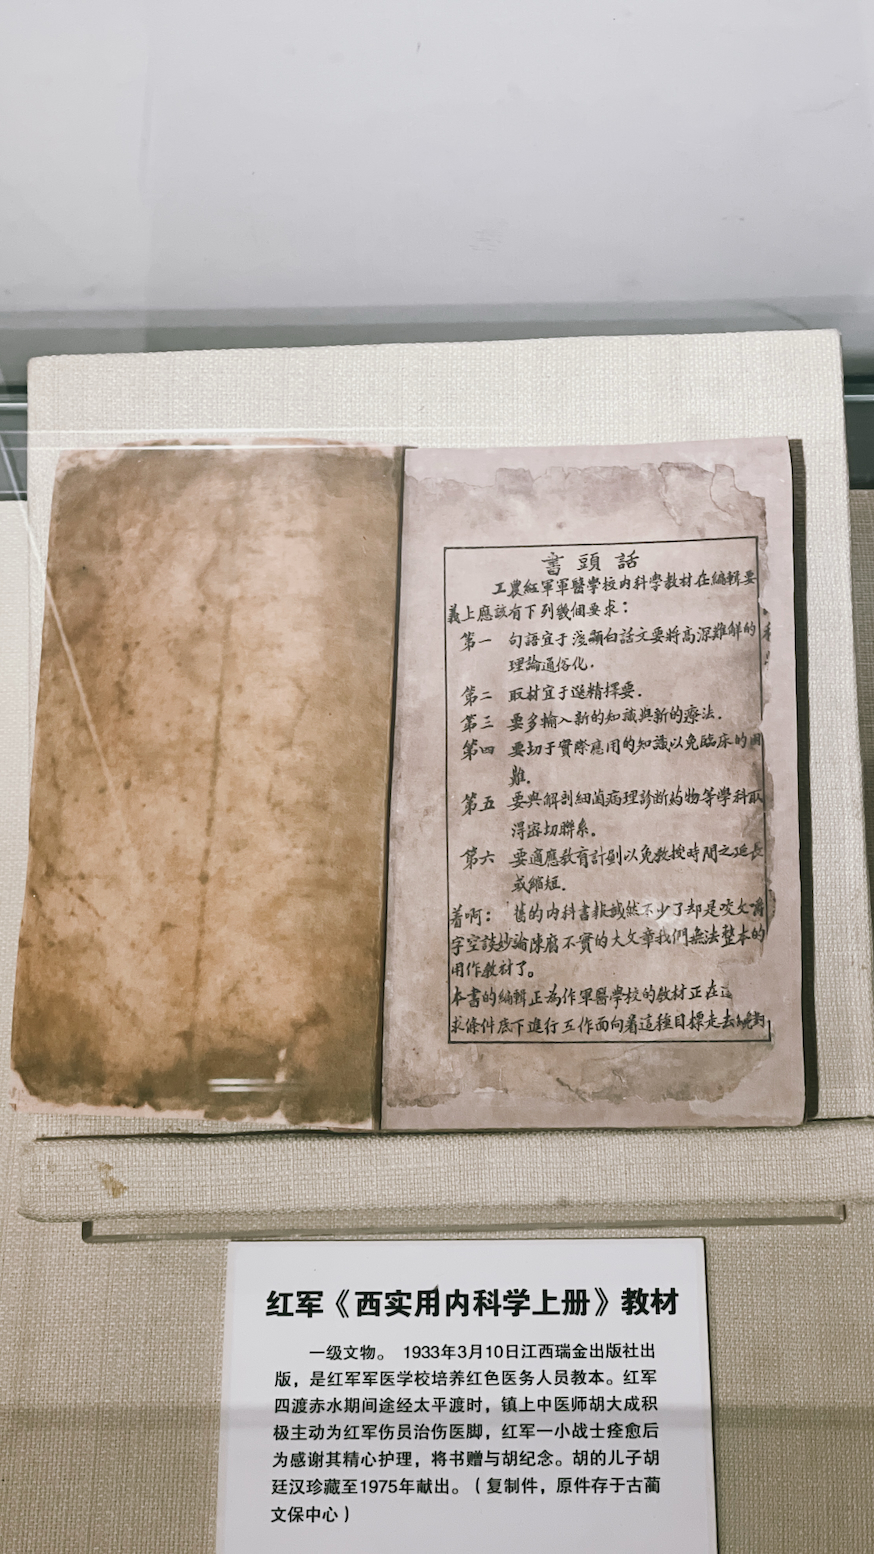 書頭話
工農紅軍軍醫學校内科學教材在編輯要
義上應該有下列幾個要求：
第一 句語宜于淺顯白話文要將高深難解的
理論通俗化．
第二 取材宜于選精擇要．
第三 要多輸入新的知識與新的療法．
第四 要切于實際應用的知識以免臨床的困
難．
第五 要與解剖細菌病理診斷药物等學科取
淂密切聯系。
第六 要適應教育計劃以免教授時間之延長
或縮短．
着啊： 舊的内科書報誠然不少了却是咬文嚼
字空談妙論陳腐不實的大文章我們無法整本的
用作教材了。
本書的編輯正為作軍醫學校的教材正在這
求條件底下進行工作面向着這種目標走去
红军《西实用内科学上册》教材
一级文物。 1933年3月10日江西瑞金出版社出
版，是红军军医学校培养红色医务人员教本。红军
四渡赤水期间途经太平渡时，镇上中医师胡大成积
极主动为红军伤员治伤医脚，红军一小战士痊愈后
为感谢其精心护理，将书赠与胡纪念。胡的儿子胡
廷汉珍藏至1975年献出。（复制件，原件存于古蔺
文保中心）